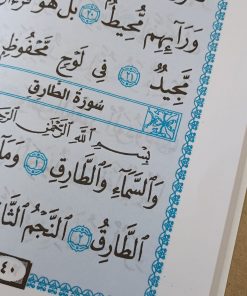 وَرَآئِهِم مُّحِيطٌۢ ٢٠ بَلْ هُوَ قُرْءَانٌ
مَّجِيدٌ ٢١ فِي لَوْحٍ مَّحْفُوظٍ
سُورَةُ الطَّارِقِ
بِسْمِ اللَّهِ الرَّحْمَٰنِ
وَالسَّمَآءِ وَالطَّارِقِ ١ وَمَآ
الطَّارِقُ ٢ النَّجْمُ الثَّا
٤٠